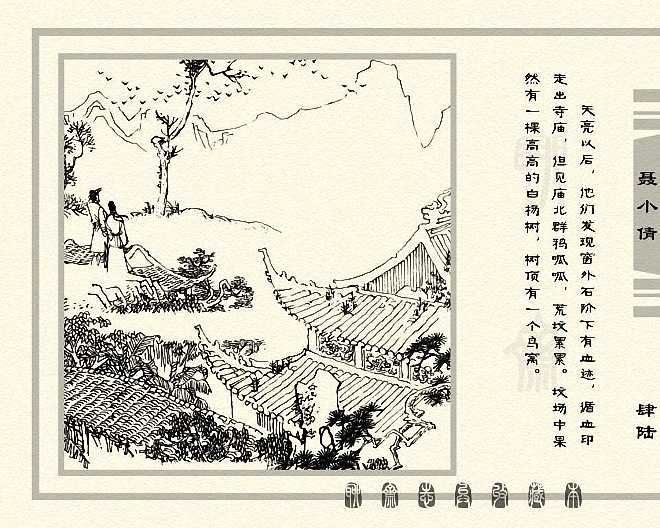 聂小倩
肆陆
天亮以后，他们发现窗外石阶下有血迹，循血印
走出寺庙，但见庙北群鸦呱呱，荒坟累累。坟场中果
然有一棵高高的白杨树，树顶有一个鸟窝。